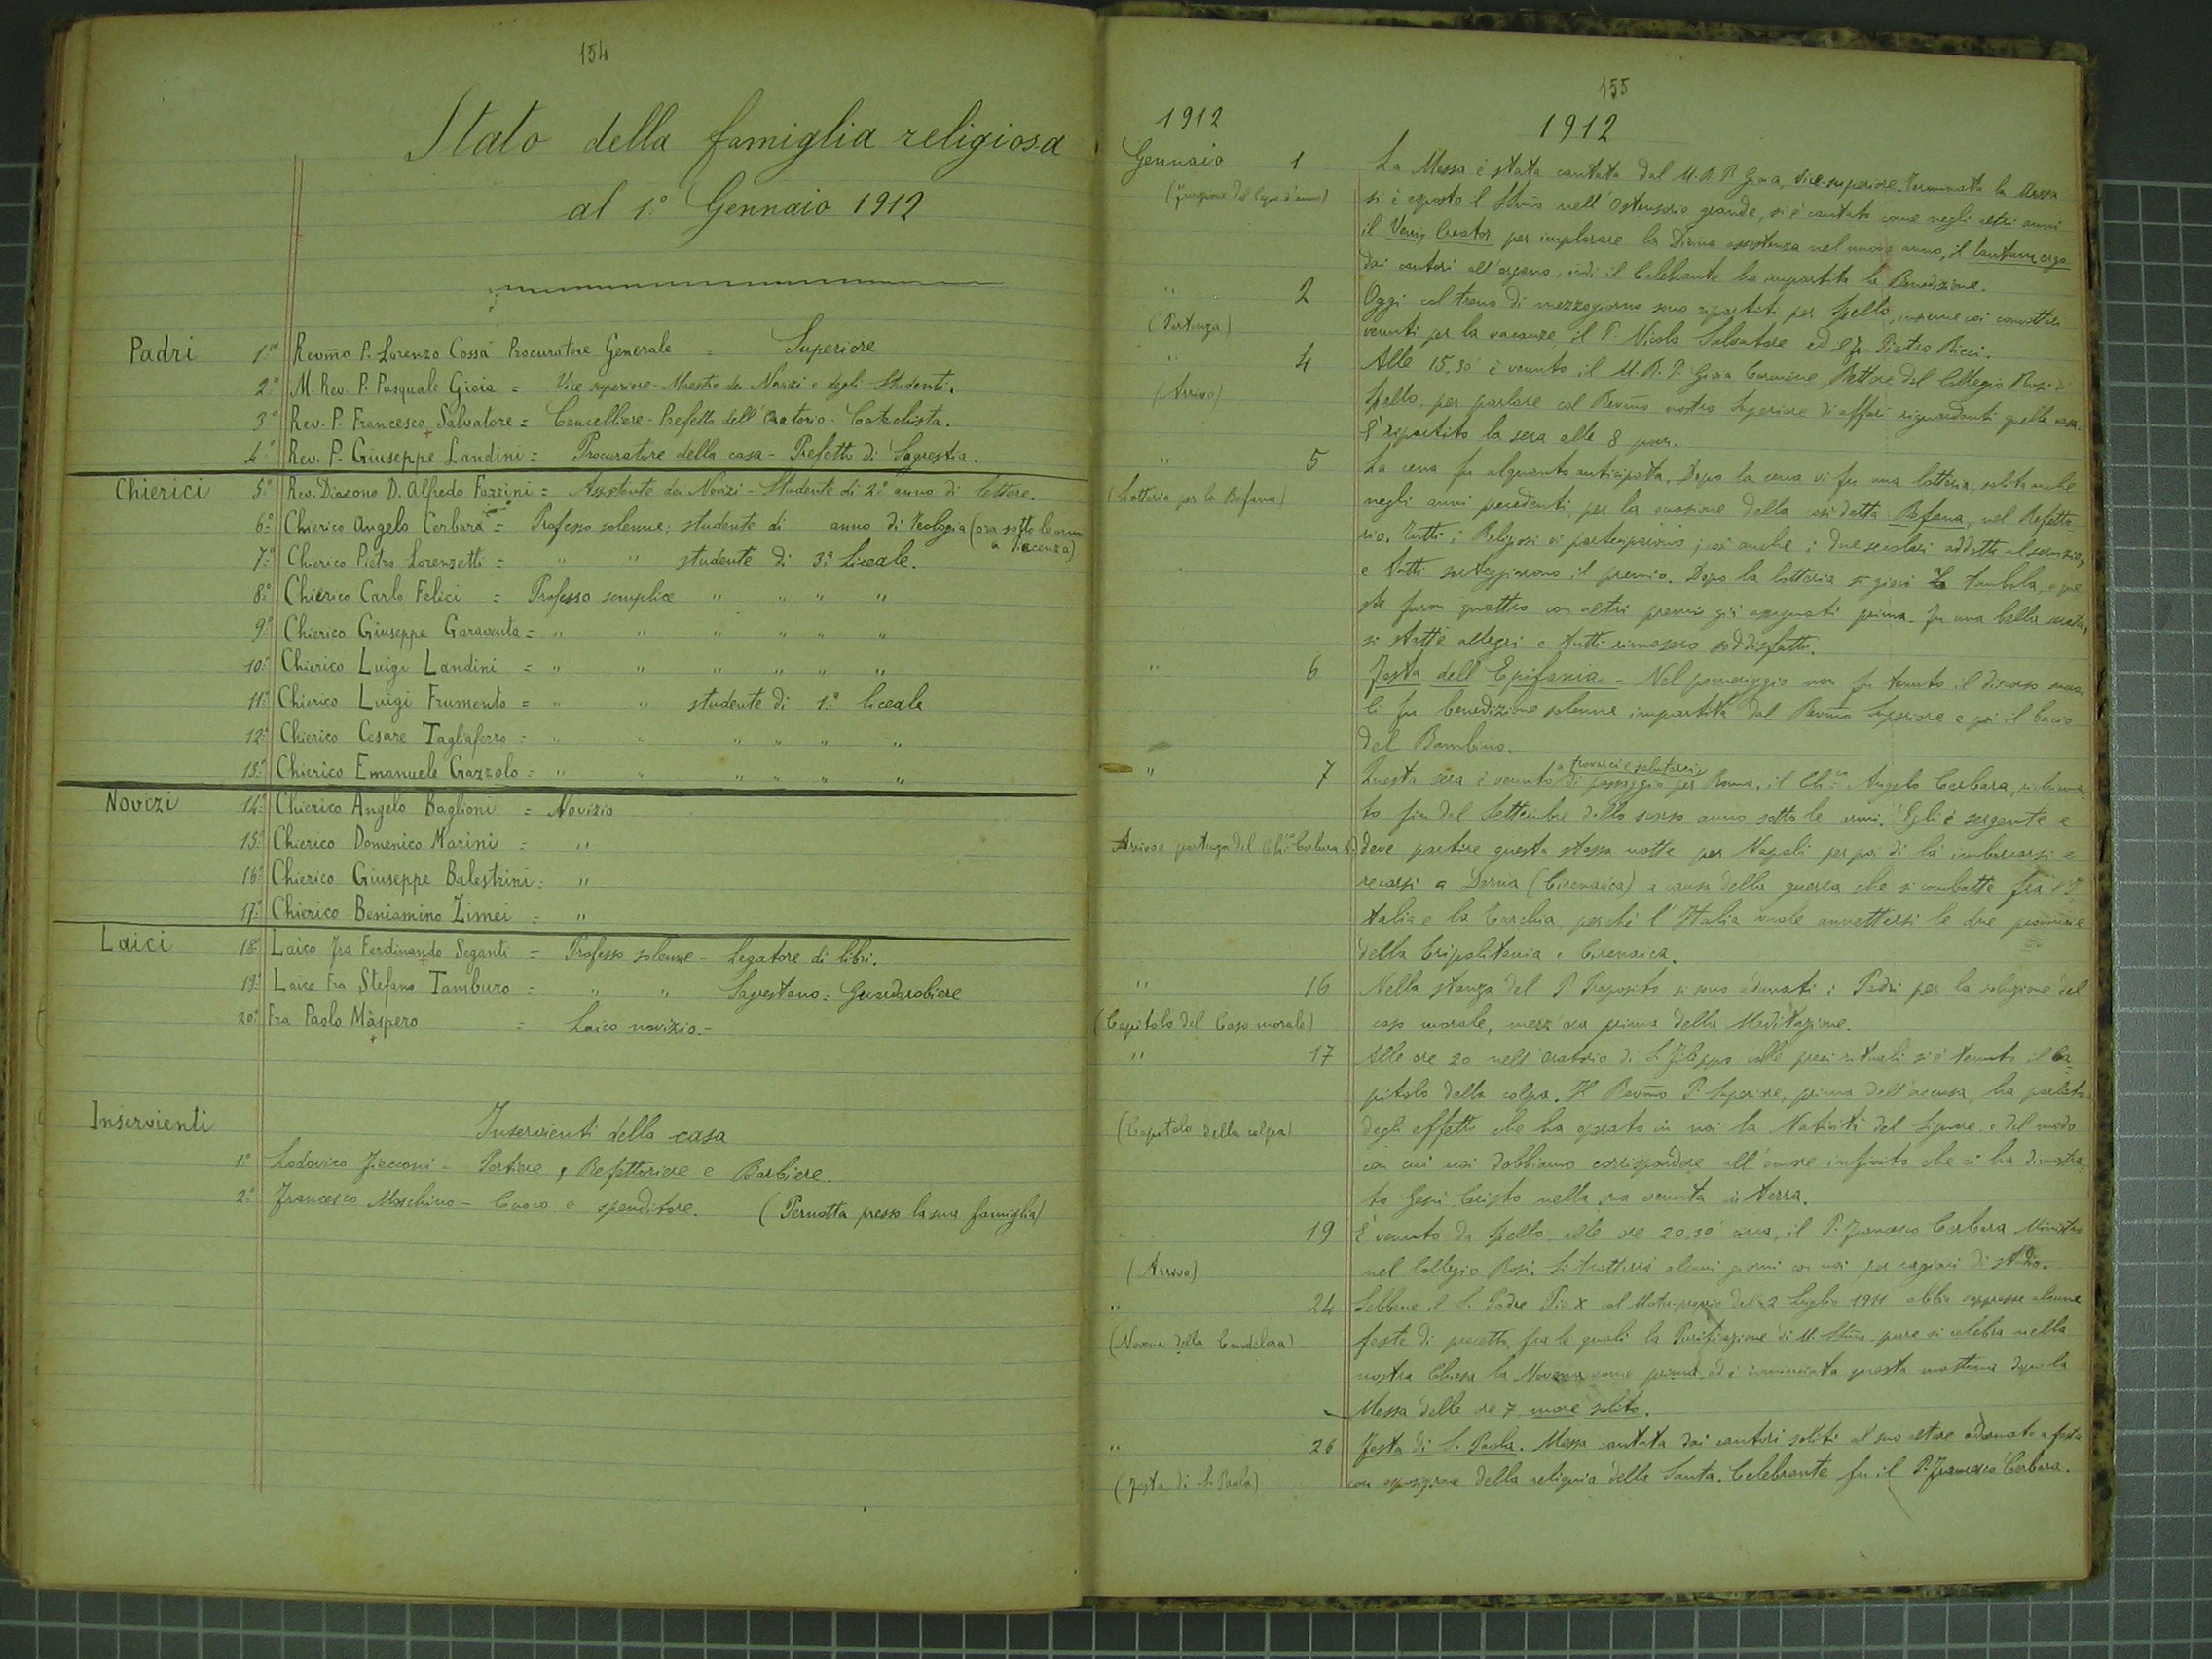 154
Stato della famiglia religiosa
al 1º Gennaio 1912
Padri 1º Revmo P. Lorenzo Cossa Procuratore Generale = Superiore
2º M. Rev. P. Pasquale Gioia = Vice-superiore - Maestro dei Novizi e degli Studenti.
3º Rev. P. Francesco Salvatore = Cancelliere - Prefetto dell'Oratorio - Catechista.
4º Rev. P. Giuseppe Landini = Procuratore della casa - Prefetto di Sagrestia.
Chierici 5º Rev. Diacono D. Alfredo Fazzini = Assistente dei Novizi - Studente di 2º anno di lettere.
6º Chierico Angelo Cerbara = Professo solenne: studente di anno di Teologia (ora sotto le armi
a Piacenza)
7º Chierico Pietro Lorenzetti = " " studente di 3ª liceale.
8º Chierico Carlo Felici = Professo semplice " " " "
9º Chierico Giuseppe Garaventa = " " " " " "
10º Chierico Luigi Landini = " " " " " "
11º Chierico Luigi Frumento = " " studente di 1ª liceale
12º Chierico Cesare Tagliaferro = " " " " " "
13º Chierico Emanuele Gazzolo = " " " " " "
Novizi 14º Chierico Angelo Baglioni = Novizio
15º Chierico Domenico Marini = "
16º Chierico Giuseppe Balestrini = "
17º Chierico Beniamino Zimei = "
Laici 18º Laico Fra Ferdinando Seganti = Professo solenne - Legatore di libri.
19º Laico Fra Stefano Tamburo = " " Sagrestano = Guardarobiere
20º Fra Paolo Màspero = Laico novizio.-
Inservienti
Inservienti della casa
1º Lodovico Fiecconi - Portiere, Refettoriere e Barbiere.
2º Francesco Moschino - Cuoco e spenditore. (Pernotta presso la sua famiglia)
155
1912 1912
Gennaio 1 La Messa è stata cantata dal M.R.P. Gioia, Vice-superiore. Terminata la Messa
(Funzione del Capo d'anno) si è esposto il SSmo nell'Ostensorio grande, si è cantato come negli altri anni
il Veni, Creator per implorare la Divina assistenza nel nuovo anno, il Tantum ergo
dai cantori all'organo, indi il Celebrante ha impartita la Benedizione.
" 2 Oggi col treno di mezzogiorno sono ripartiti per Spello, insieme coi convittori
(Partenza) venuti per la vacanze, il P. Nicola Salvatore ed il fr. Pietro Ricci.
" 4 Alle 15,30 è venuto il M.R.P. Gioia Carmine Rettore del Collegio Rosi di
(Arrivo) Spello, per parlare col Revmo nostro Superiore di affari riguardanti quella casa.
È ripartito la sera alle 8 pom.
" 5 La cena fu alquanto anticipata. Dopo la cena vi fu una lotteria, solita anche
(Lotteria per la Befana) negli anni precedenti, per la occasione della così detta Befana, nel Refetto-
rio. Tutti i Religiosi vi parteciparono; così anche i due secolari addetti al servizio,
e tutti sorteggiarono il premio. Dopo la lotteria si giocò la tombola, e que
ste furon quattro con altri premi già assegnati prima. Fu una bella serata,
si stette allegri e tutti rimasero soddisfatti.
" 6 Festa dell'Epifania - Nel pomeriggio non fu tenuto il discorso
li fu benedizione solenne impartita dal Revmo Superiore e poi il bacio
del Bambino.
a trovarci e salutarci,
" 7 Questa sera è venuto di passaggio per Roma, il Ch.co Angelo Cerbara, richiama-
to fin dal Settembre dello scorso anno sotto le armi. Egli è sergente e
Arrivo e partenza del Ch.co Cerbara A.) deve partire questa stessa notte per Napoli per poi di là imbarcarsi e
recarsi a Derna (Cirenaica) a causa della guerra che si combatte fra l'I-
talia e la Turchia, perchè l'Italia vuole annettersi le due provincie
della Tripolitania e Cirenaica.
" 16 Nella stanza del P. Preposito si sono adunati i Padri per la soluzione del
(Capitolo del Caso morale) caso morale, mezz'ora prima della Meditazione.
" 17 Alle ore 20 nell'oratorio di S. Filippo colle preci rituali si è tenuto il Ca-
pitolo della colpa. Il Revmo P. Superiore, prima dell'accusa, ha parlato
(Capitolo della colpa) degli effetti che ha operato in noi la Natività del Signore, e del modo
con cui noi dobbiamo corrispondere all'amore infinito che ci ha dimostra
to Gesù Cristo nella sua venuta in terra.
" 19 È venuto da Spello, alle ore 20,30 circa, il P. Francesco Cerbara Ministro
(Arrivo) nel Collegio Rosi. Si tratterrà alcuni giorni con noi per ragioni di studio.
" 24 Sebbene il S. Padre Pio X col Motu-proprio del 2 Luglio 1911 abbia soppresse alcune
(Novena della Candelora) feste di precetto, fra le quali la Purificazione di M. SSma, pure si celebra nella
nostra Chiesa la Novena come prima, ed è incominciata questa mattina dopo la
Messa delle ore 7, more solito.
" 26 Festa di S. Paola. Messa cantata dai cantori soliti al suo altare adornato a festa
(Festa di S. Paola) con esposizione della reliquia della Santa. Celebrante fu il P. Francesco Cerbara.